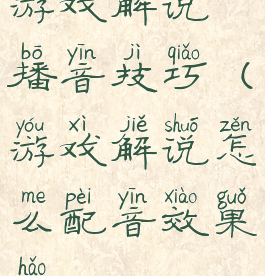 游戏解说
bō yīn jì qiǎo
播音技巧（
yóu xì jiě shuō zěn
游戏解说怎
me pèi yīn xiào guǒ
么配音效果
hǎo